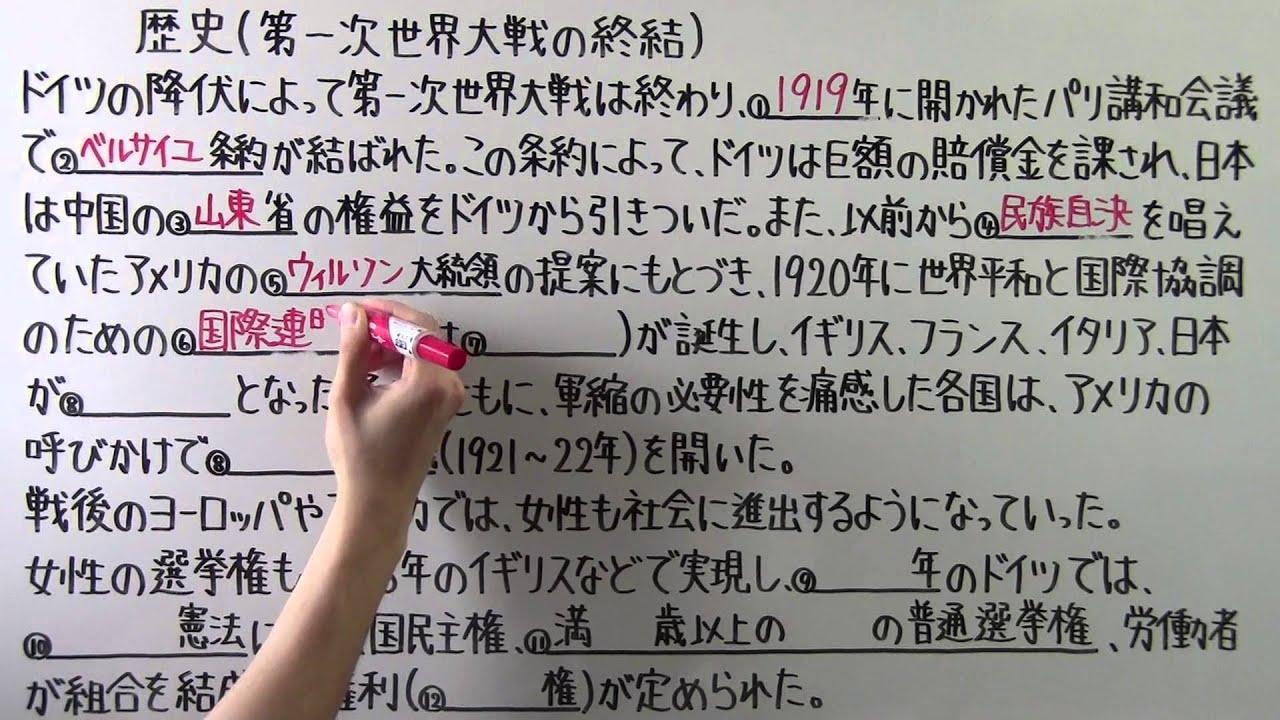 歴史(第一次世界大戦の終結)
ドイツの降伏によって第一次世界大戦は終わり、①1919年に開かれたパリ講和会議
で②ベルサイユ条約が結ばれた。この条約によって、ドイツは巨額の賠償金を課され、日本
は中国の③山東省の権益をドイツから引きついだ。また、以前から④民族自決を唱え
ていたアメリカの⑤ウィルソン大統領の提案にもとづき、1920年に世界平和と国際協調
のための⑥国際連 ⑦______)が誕生し、イギリス、フランス、イタリア、日本
が⑧______となった ともに、軍縮の必要性を痛感した各国は、アメリカの
呼びかけで⑧______(1921~22年)を開いた。
戦後のヨーロッパや カでは、女性も社会に進出するようになっていった。
女性の選挙権も 年のイギリスなどで実現し、⑨______年のドイツでは、
⑩______憲法に 国民主権、⑪満 歳以上の の普通選挙権、労働者
が組合を結成 権利(⑫______権)が定められた。